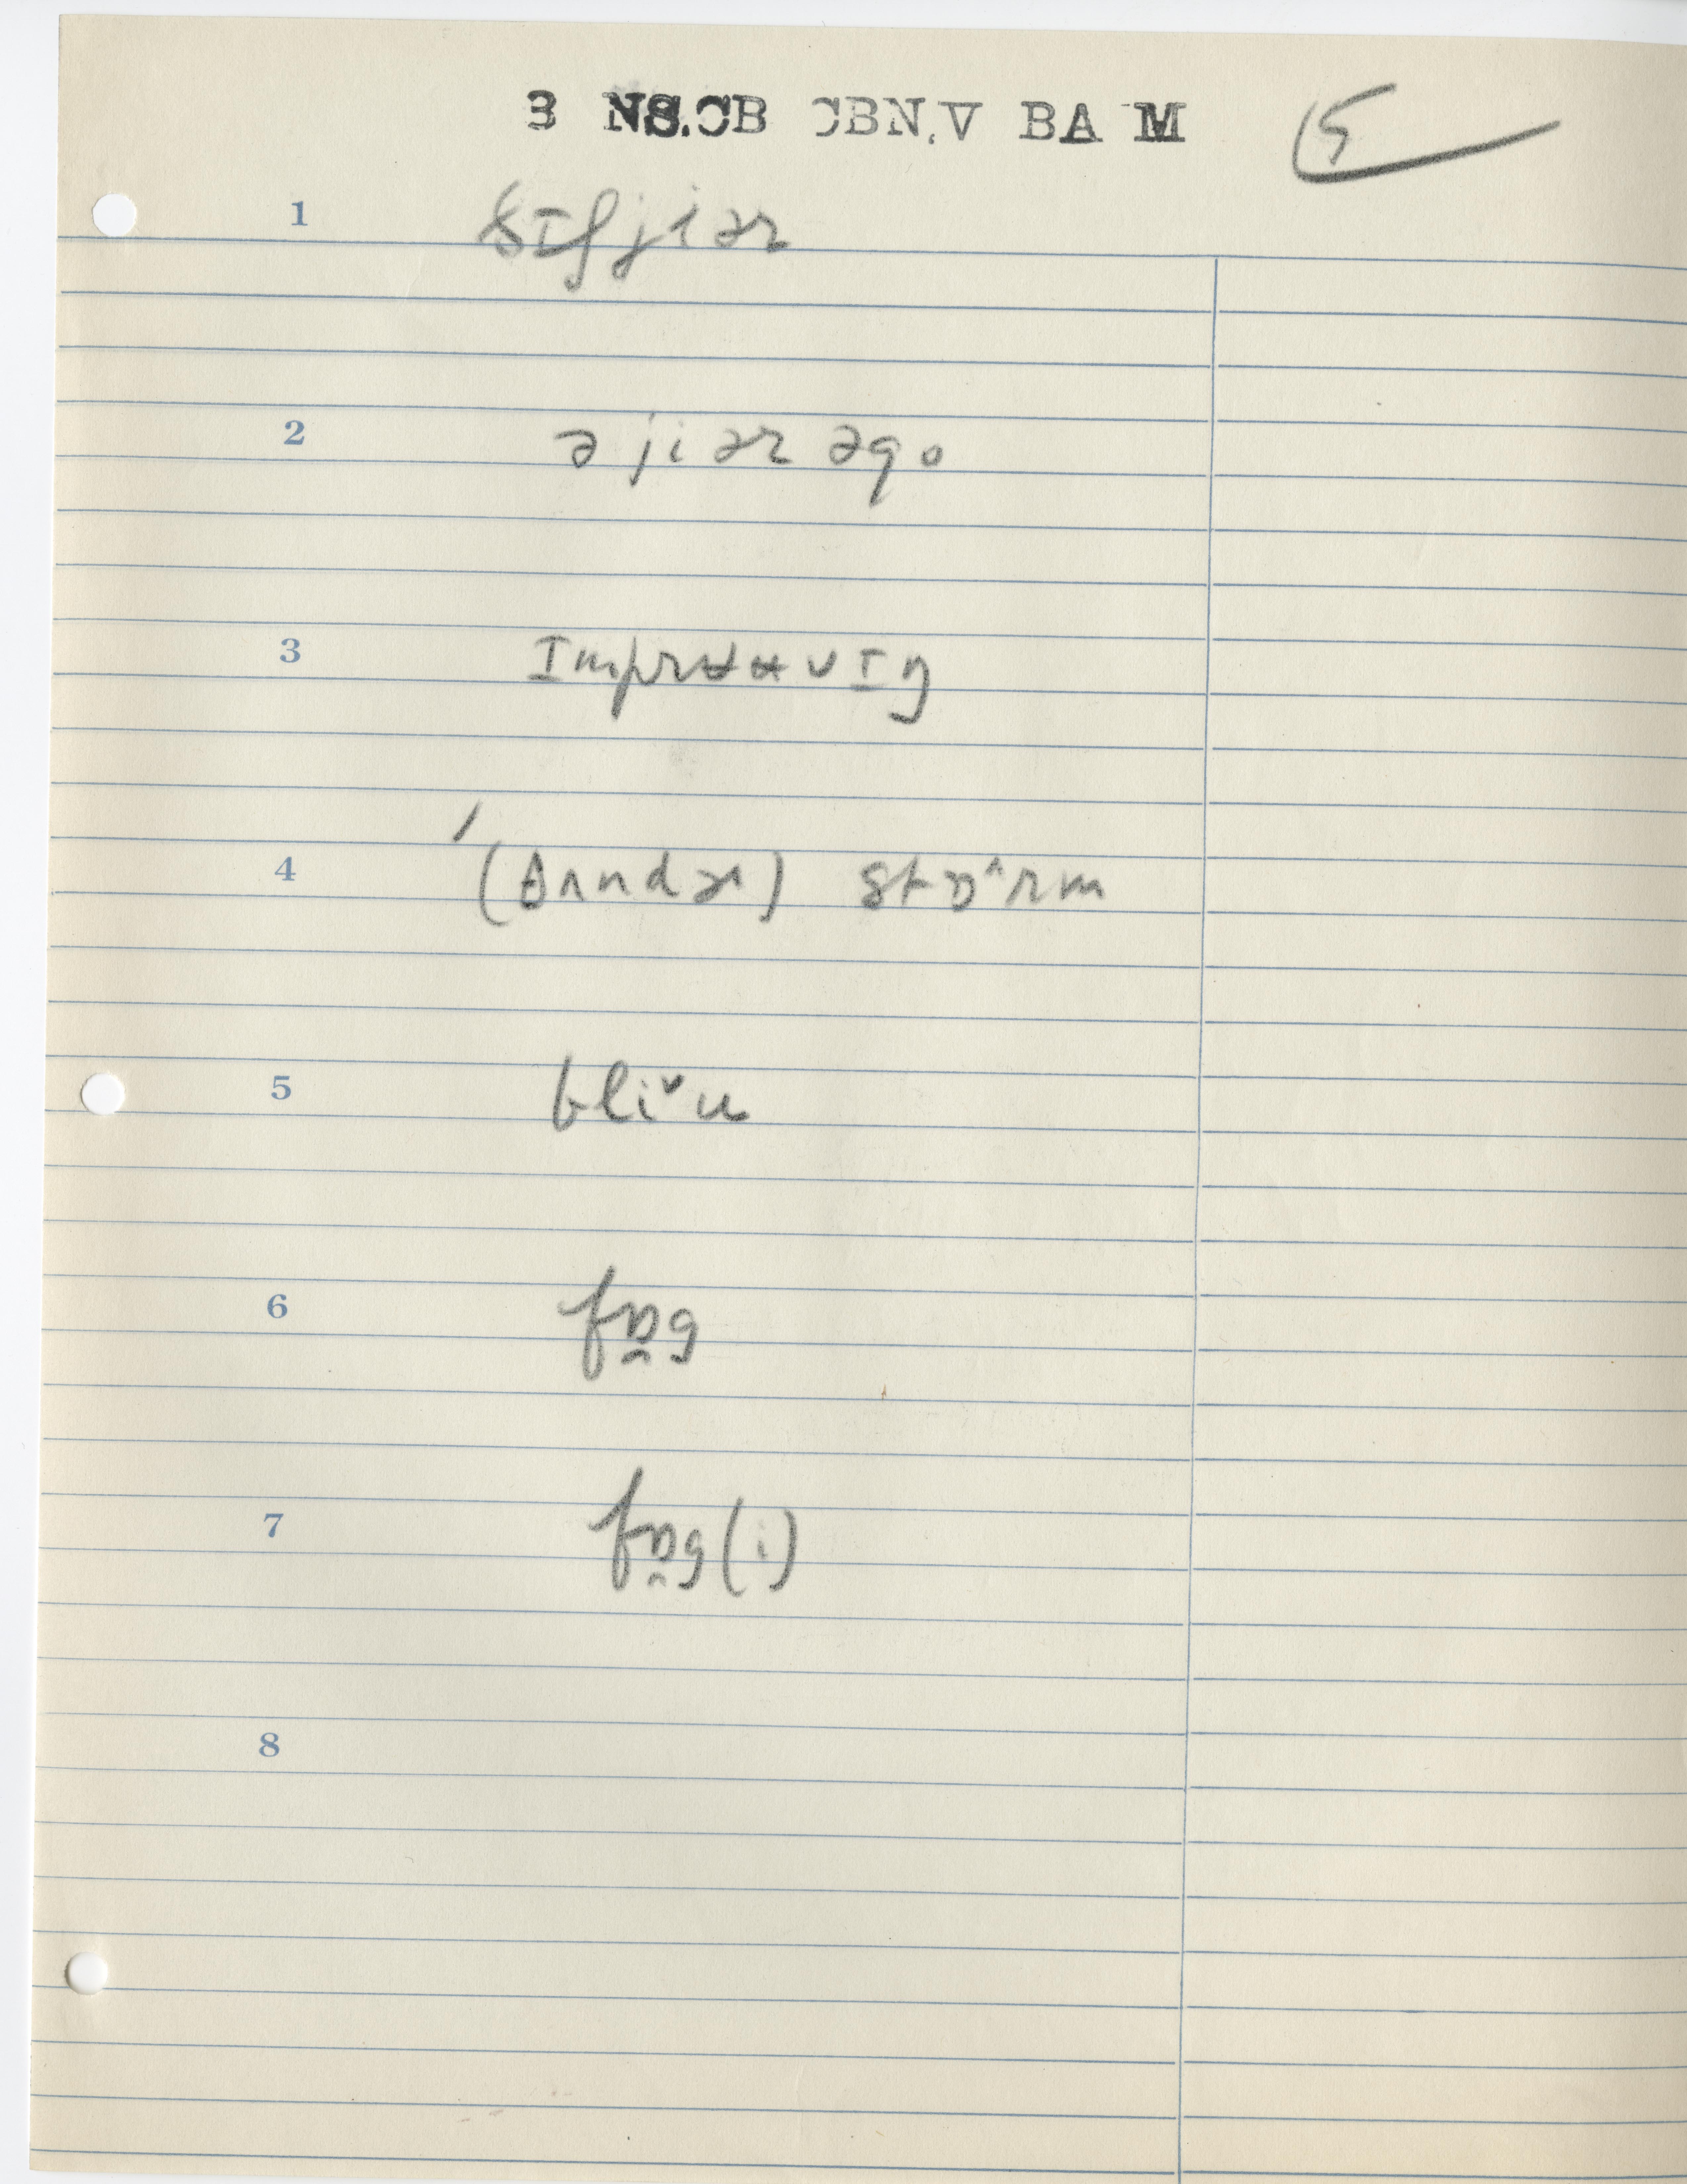 3 NS.CB CBN.V BA M 5
1 ðɪʃjiər
2 ə jiər əgo
3 ɪmprʉʉvɪŋ
4 ′(θʌndɚ) stɒ˄rm
5 bli˅u
6 fɒ̯g
7 fɒ̯g(i)
8